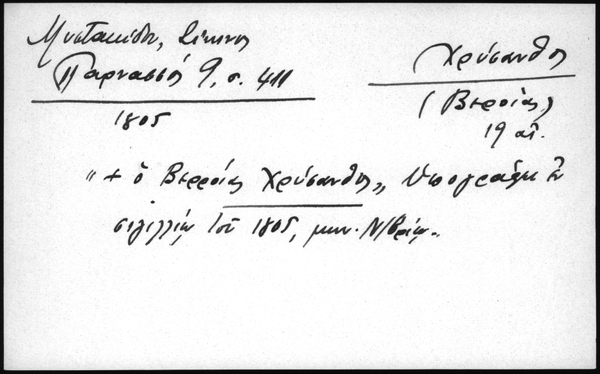 Μυστακίδου,
Παρνασσός 9, σ. 411
1805
Χρύσανθος
(Βεροίας)
19 αἰ.
"+ ὁ Βερροίας Χρύσανθος„ Ὑπογράφει ἐν
σιγιλλίῳ τοῦ 1805, μην. Ν/βρίῳ.